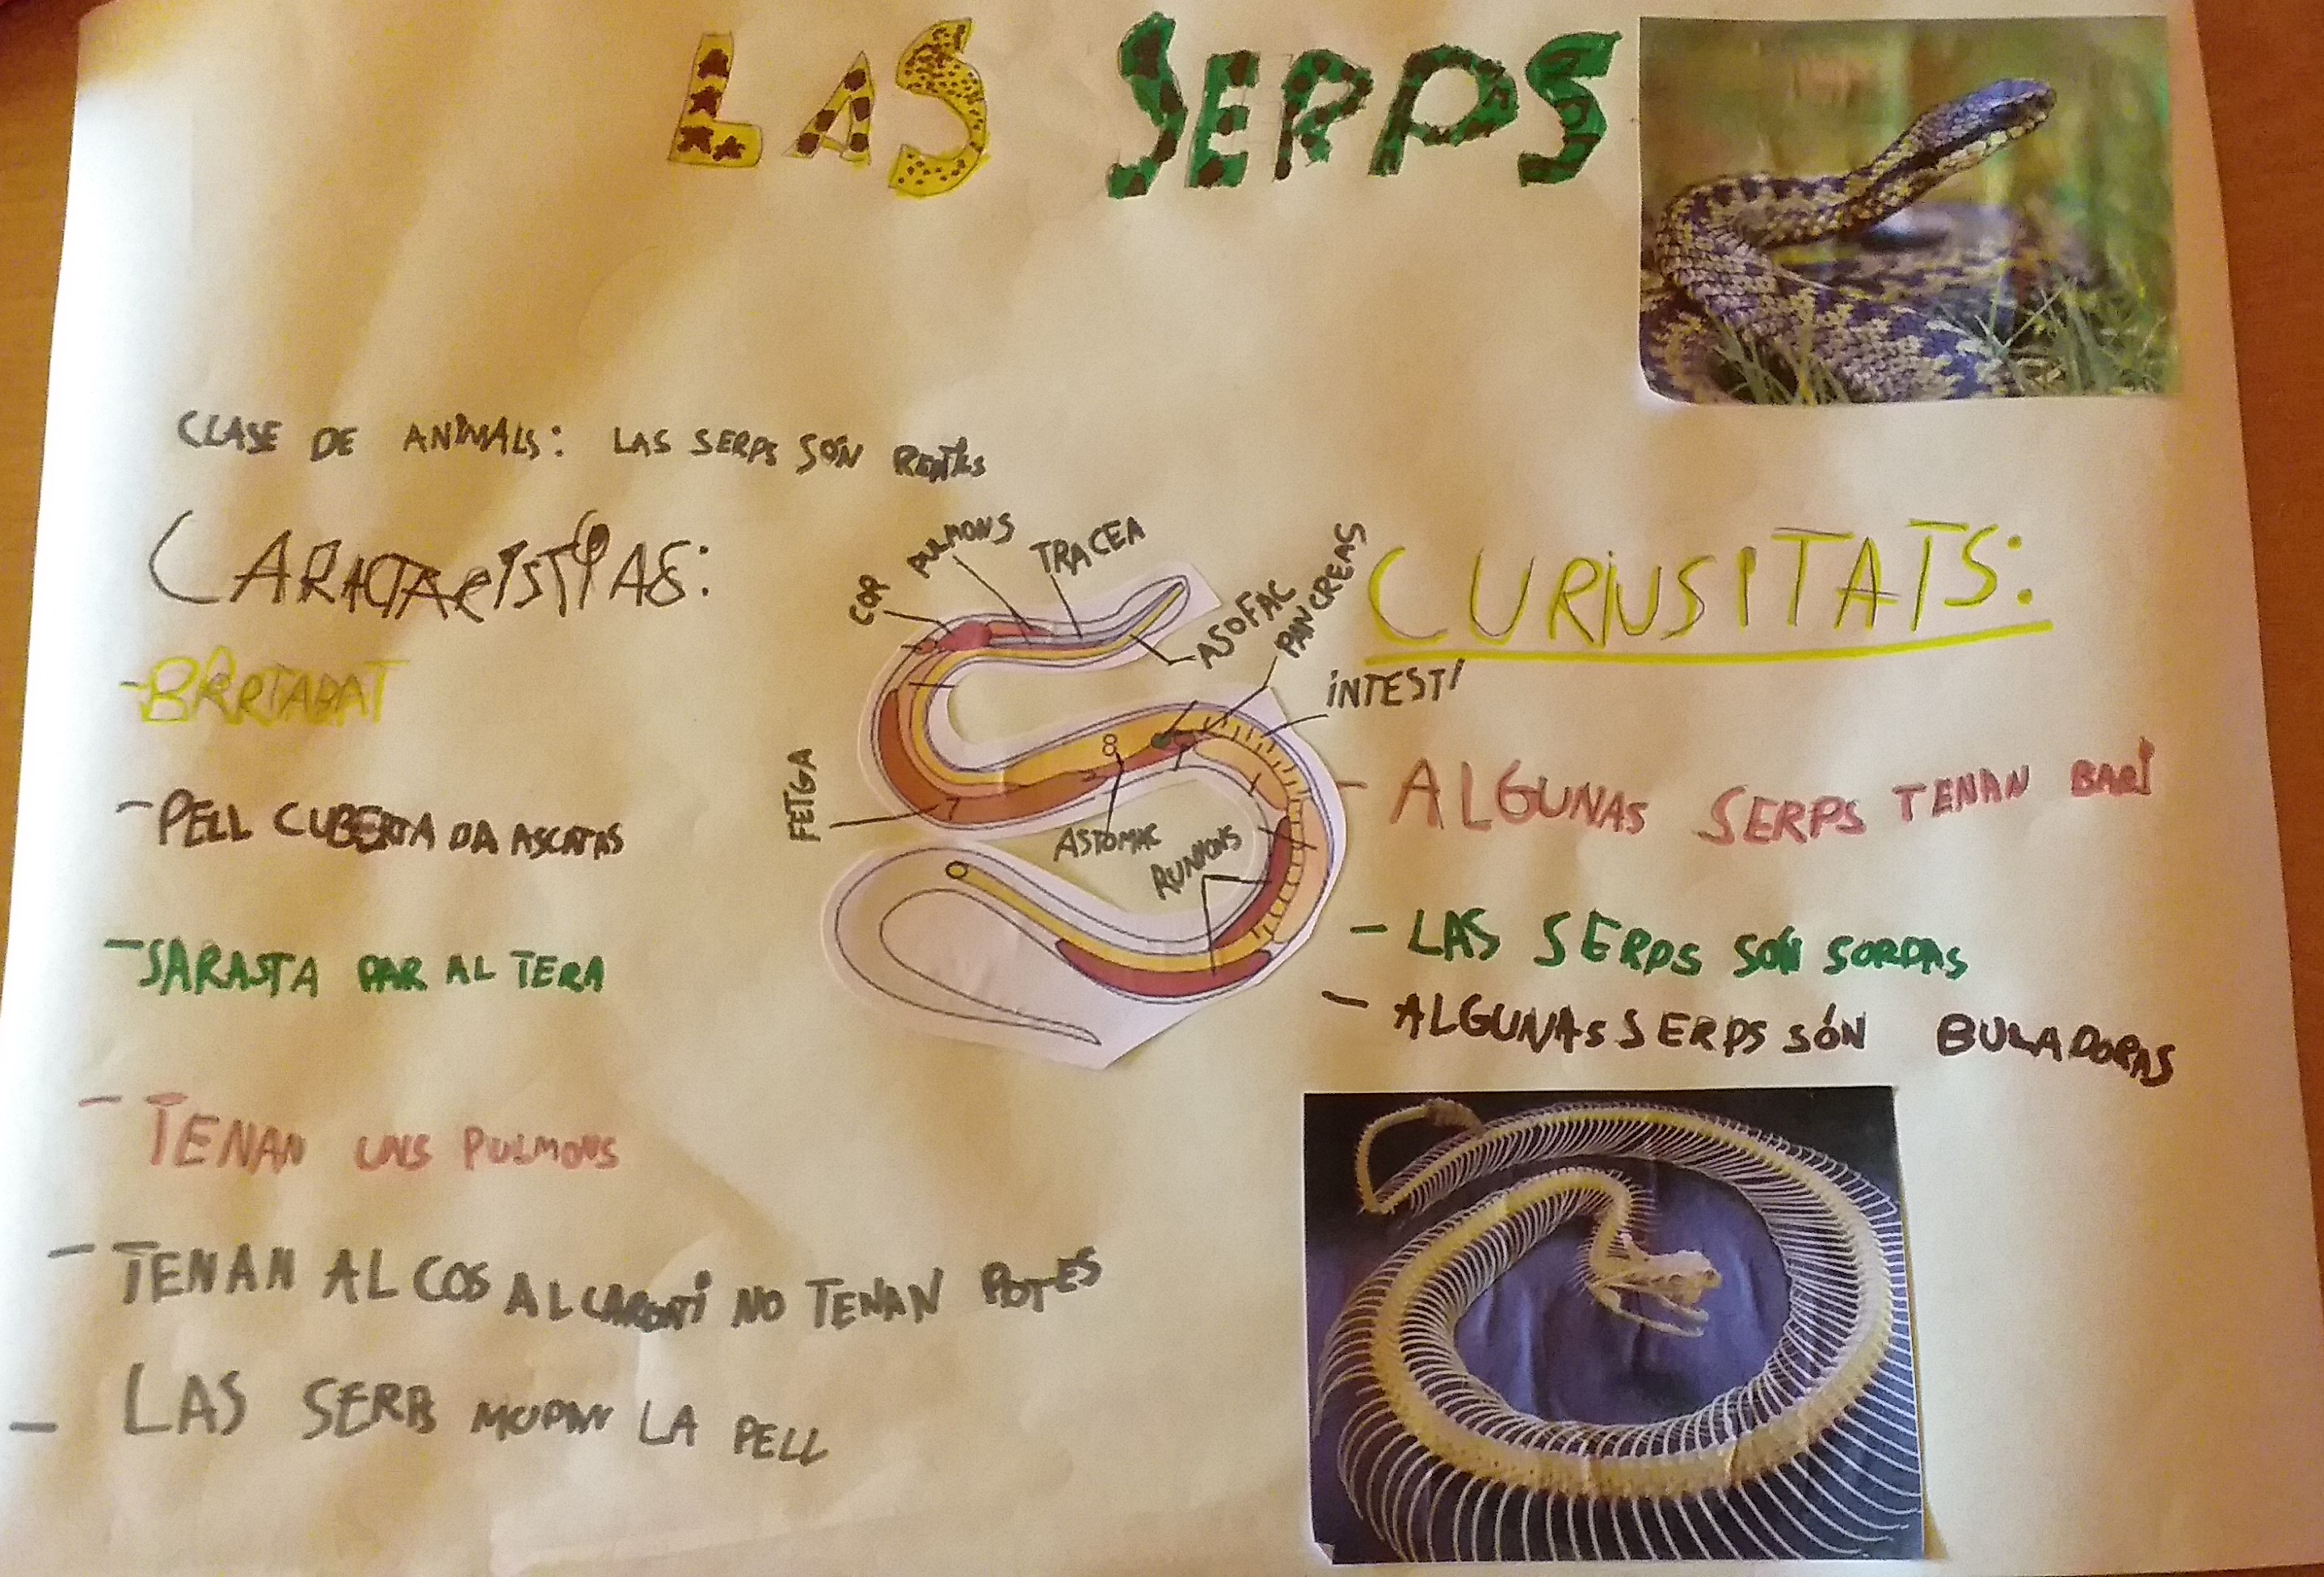 LAS SERPS
CLASE DE ANIMALS: LAS SERPS SÓN
CARACTARISTICAS:
- BRRTABAT
- PELL CUBERTA DA ASCATAS
- SARASTA PAR AL TERA
- TENAN UNS PULMONS
- TENAN AL COS NO TENAN POTES
- LAS SERPS MUDAN LA PELL
COR
PULMONS
TRACEA
ASOFAC
PANCREAS
INTESTI
FETGA
8
7
ASTOMAC
RUNYONS
CURIUSITATS:
- ALGUNAS SERPS TENAN BARI
- LAS SERPS SÓN SORDAS
- ALGUNAS SERPS SÓN BULADORAS